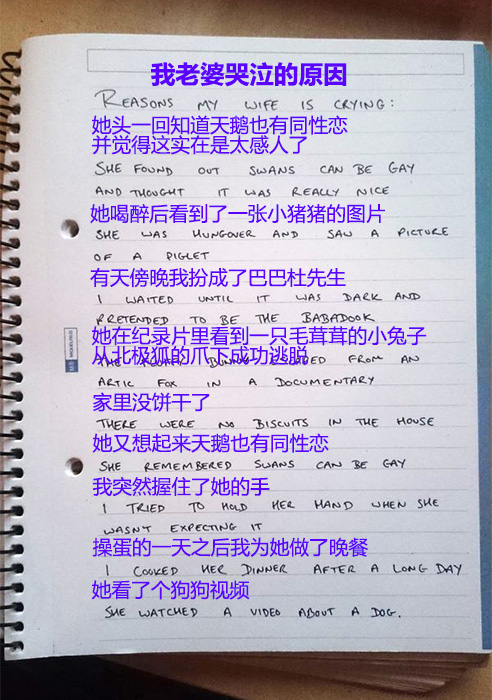 我老婆哭泣的原因
REASONS MY WIFE IS CRYING:
她头一回知道天鹅也有同性恋
并觉得这实在是太感人了
SHE FOUND OUT SWANS CAN BE GAY
AND THOUGHT IT WAS REALLY NICE
她喝醉后看到了一张小猪猪的图片
SHE WAS HUNGOVER AND SAW A PICTURE
OF A PIGLET
有天傍晚我扮成了巴巴杜先生
I WAITED UNTIL IT WAS DARK AND
PRETENDED TO BE THE BABADOOK
她在纪录片里看到一只毛茸茸的小兔子
从北极狐的爪下成功逃脱
THE FLUFFY BUNNY ESCAPED FROM AN
ARTIC FOX IN A DOCUMENTARY
家里没饼干了
THERE WERE NO BISCUITS IN THE HOUSE
她又想起来天鹅也有同性恋
SHE REMEMBERED SWANS CAN BE GAY
我突然握住了她的手
I TRIED TO HOLD HER HAND WHEN SHE
WASN'T EXPECTING IT
操蛋的一天之后我为她做了晚餐
I COOKED HER DINNER AFTER A LONG DAY
她看了个狗狗视频
SHE WATCHED A VIDEO ABOUT A DOG.